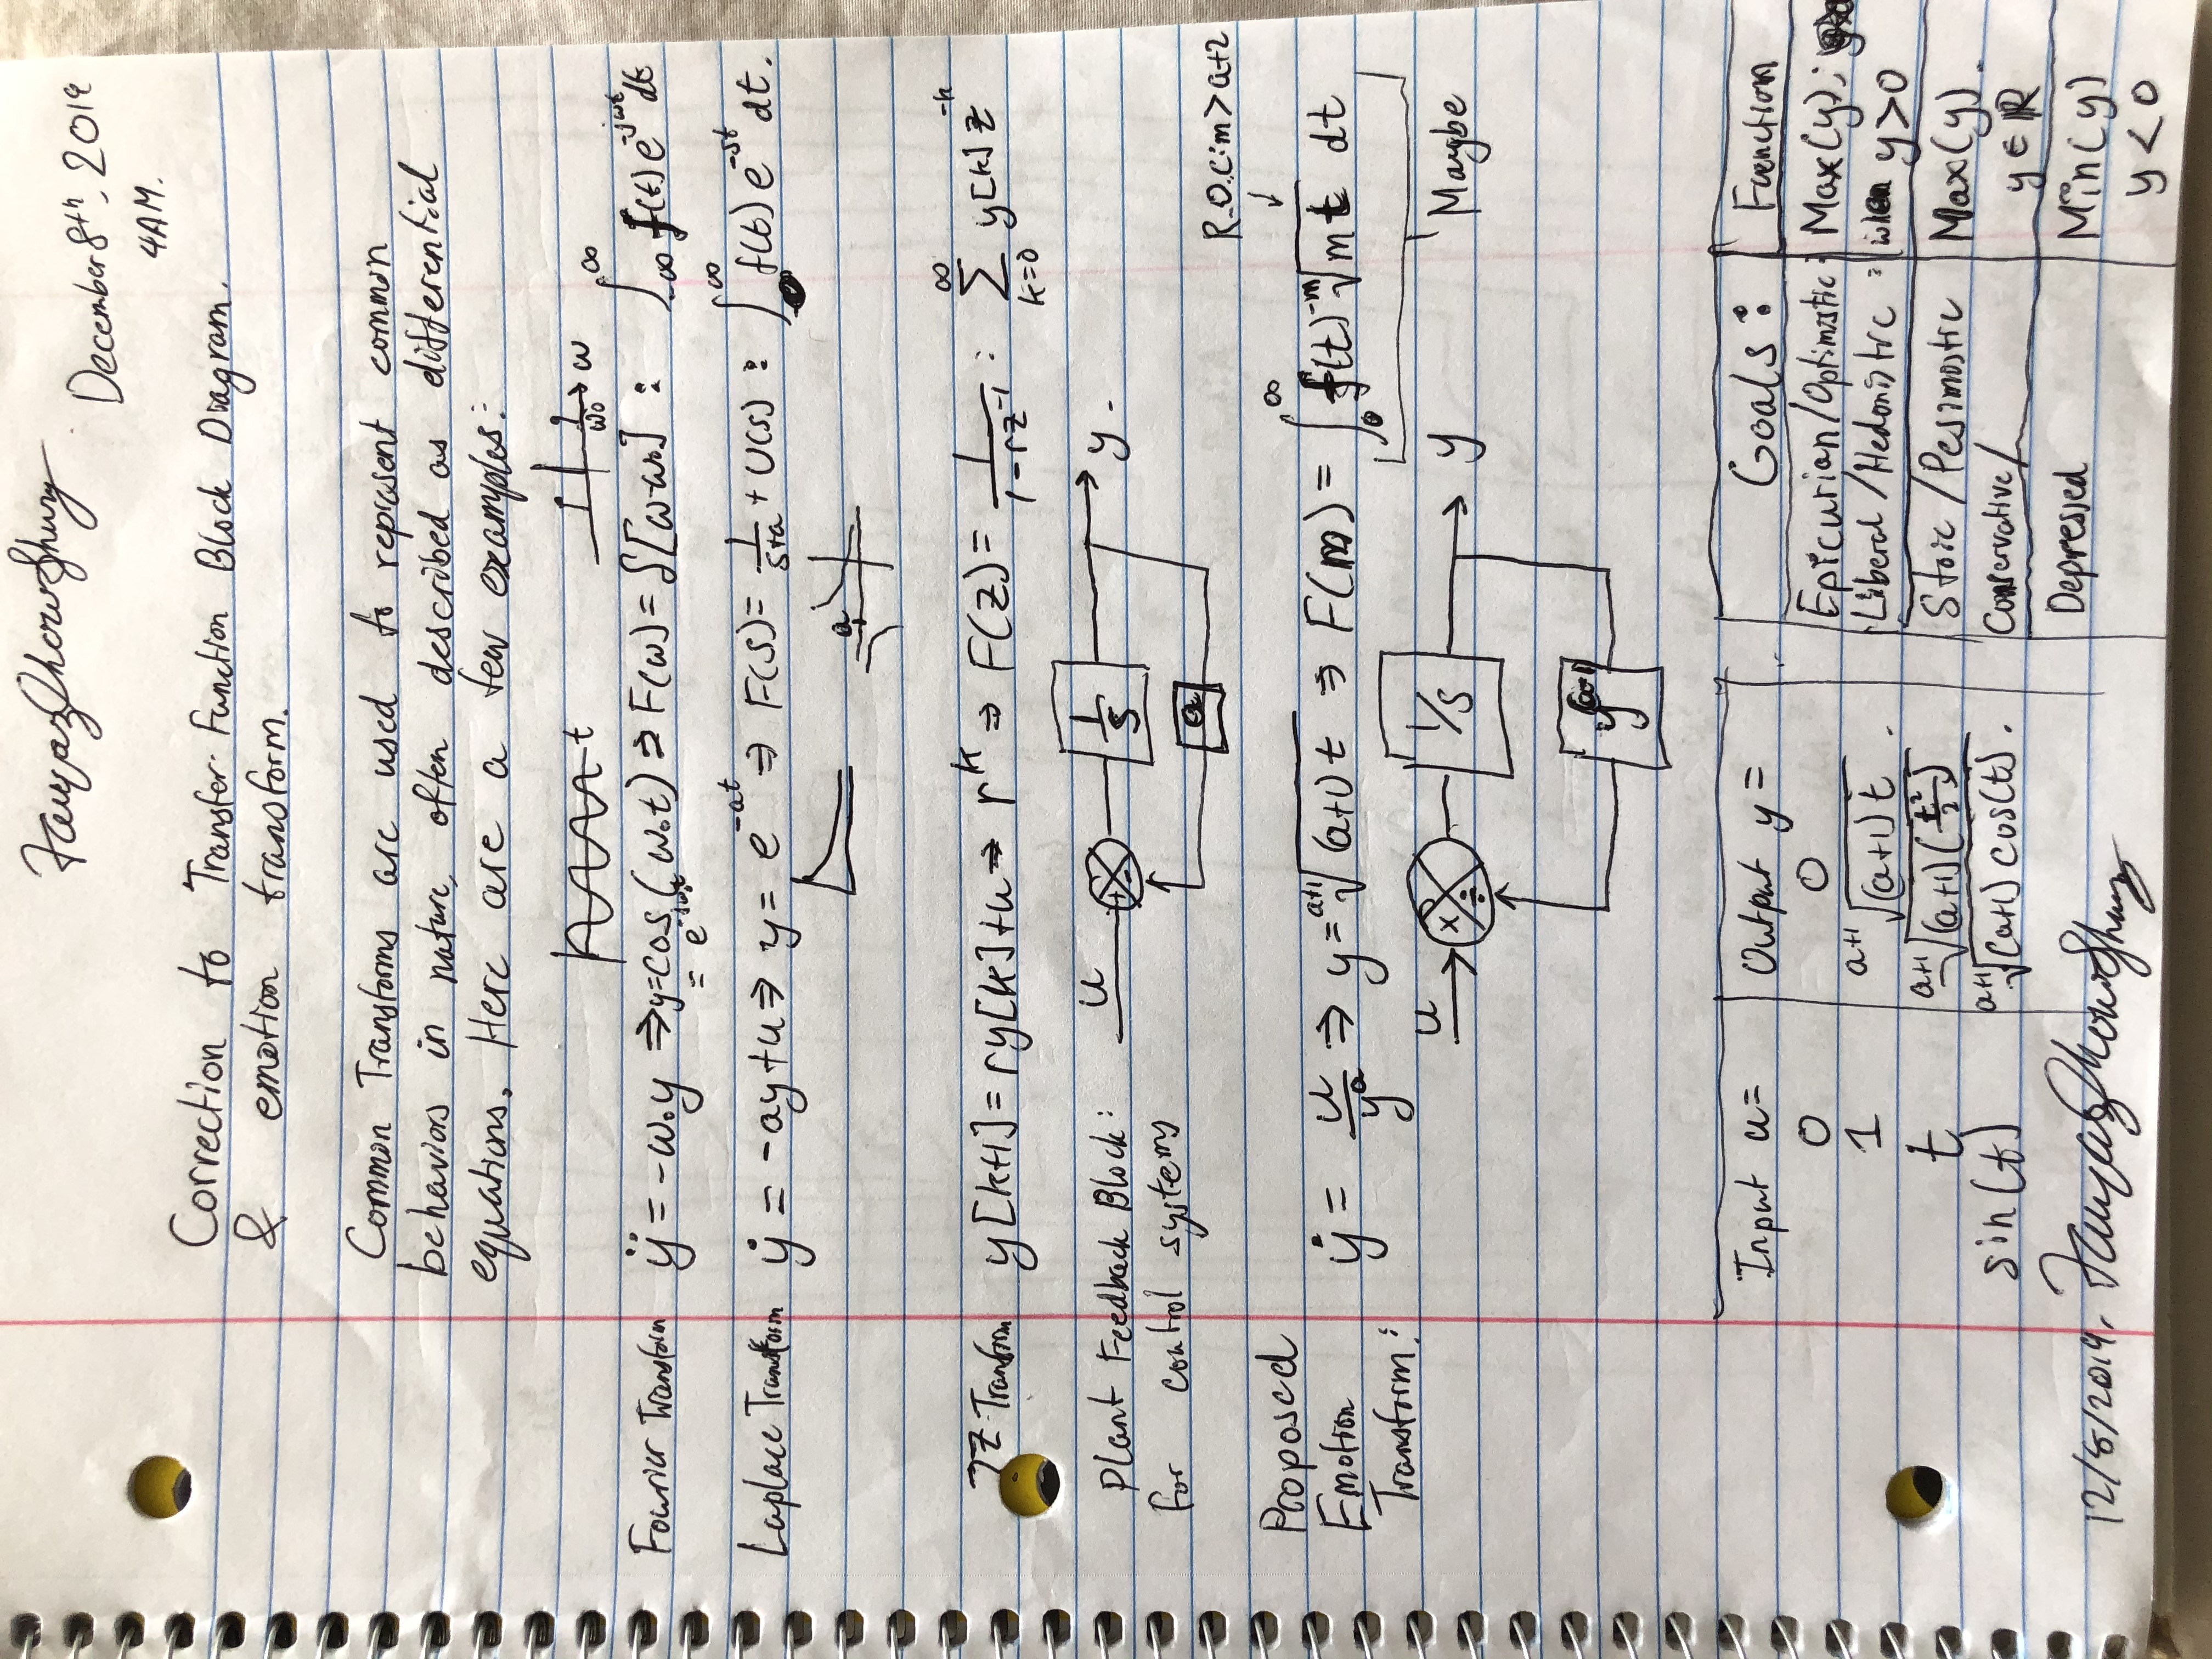 Fayaz Chowdhury
December 8th, 2019
4AM.
Correction to Transfer Function Block Diagram.
& emotion transform.
Common Transforms are used to represent common
behaviors in nature, often described as differential
equations. Here are a few examples:
t
ω0 ω
Fourier Transform ÿ = -ω₀y ⇒ y=cos(ω₀t) ⇒ F(ω) = δ[ω-ω₀] : ∫_{-∞}^{∞} f(t) e^{-jωt} dt
= e^{-jω₀t}
Laplace Transform ẏ = -ay+u ⇒ y = e^{-at} ⇒ F(s) = 1/(s+a) + U(s) : ∫^{∞} f(t) e^{-st} dt.
a
Z-Transform y[k+1] = ry[k]+u ⇒ r^k ⇒ F(z) = 1/(1-rz^{-1}) : ∑_{k=0}^{∞} y[k] z^{-k}
Plant Feedback Block: u + - 1/s y.
for control systems
a
R.O.C: m > a+2
Proposed
Emotion
Transform: ẏ = u/y^a ⇒ y = ᵃ⁺¹√((a+1)t) ⇒ F(m) = ∫_0^{∞} f(t) ⁻ᵐ√(mt) dt
u × ÷ 1/s y Maybe
y
Input u= Output y = Goals: Function
0 0 Epicurian/Optimistic: Max(y);
1 ᵃ⁺¹√((a+1)t). Liberal/Hedonistic: when y>0
t ᵃ⁺¹√((a+1)(t²/2)) Stoic/Pesimostic Max(y).
sin(t) ᵃ⁺¹√((a+1)cos(t)). Conservative/ y∈ℝ
Depressed Min(y)
y<0
12/8/2019. Fayaz Chowdhury